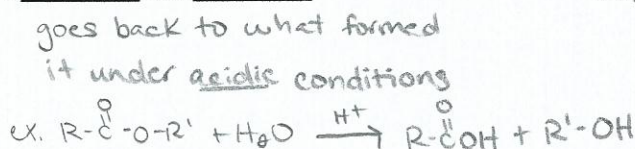 goes back to what formed
it under acidic conditions
O O
ex. R-C-O-R' + H₂O H+ → R-COH + R'-OH